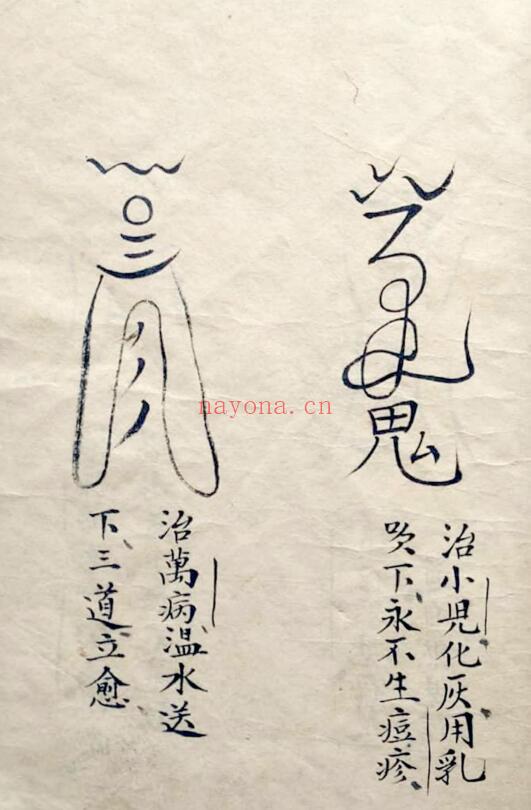 鬼
治小児化灰用乳
吹下永不生痘疹
治萬病温水送
下三道立愈
nayona.cn